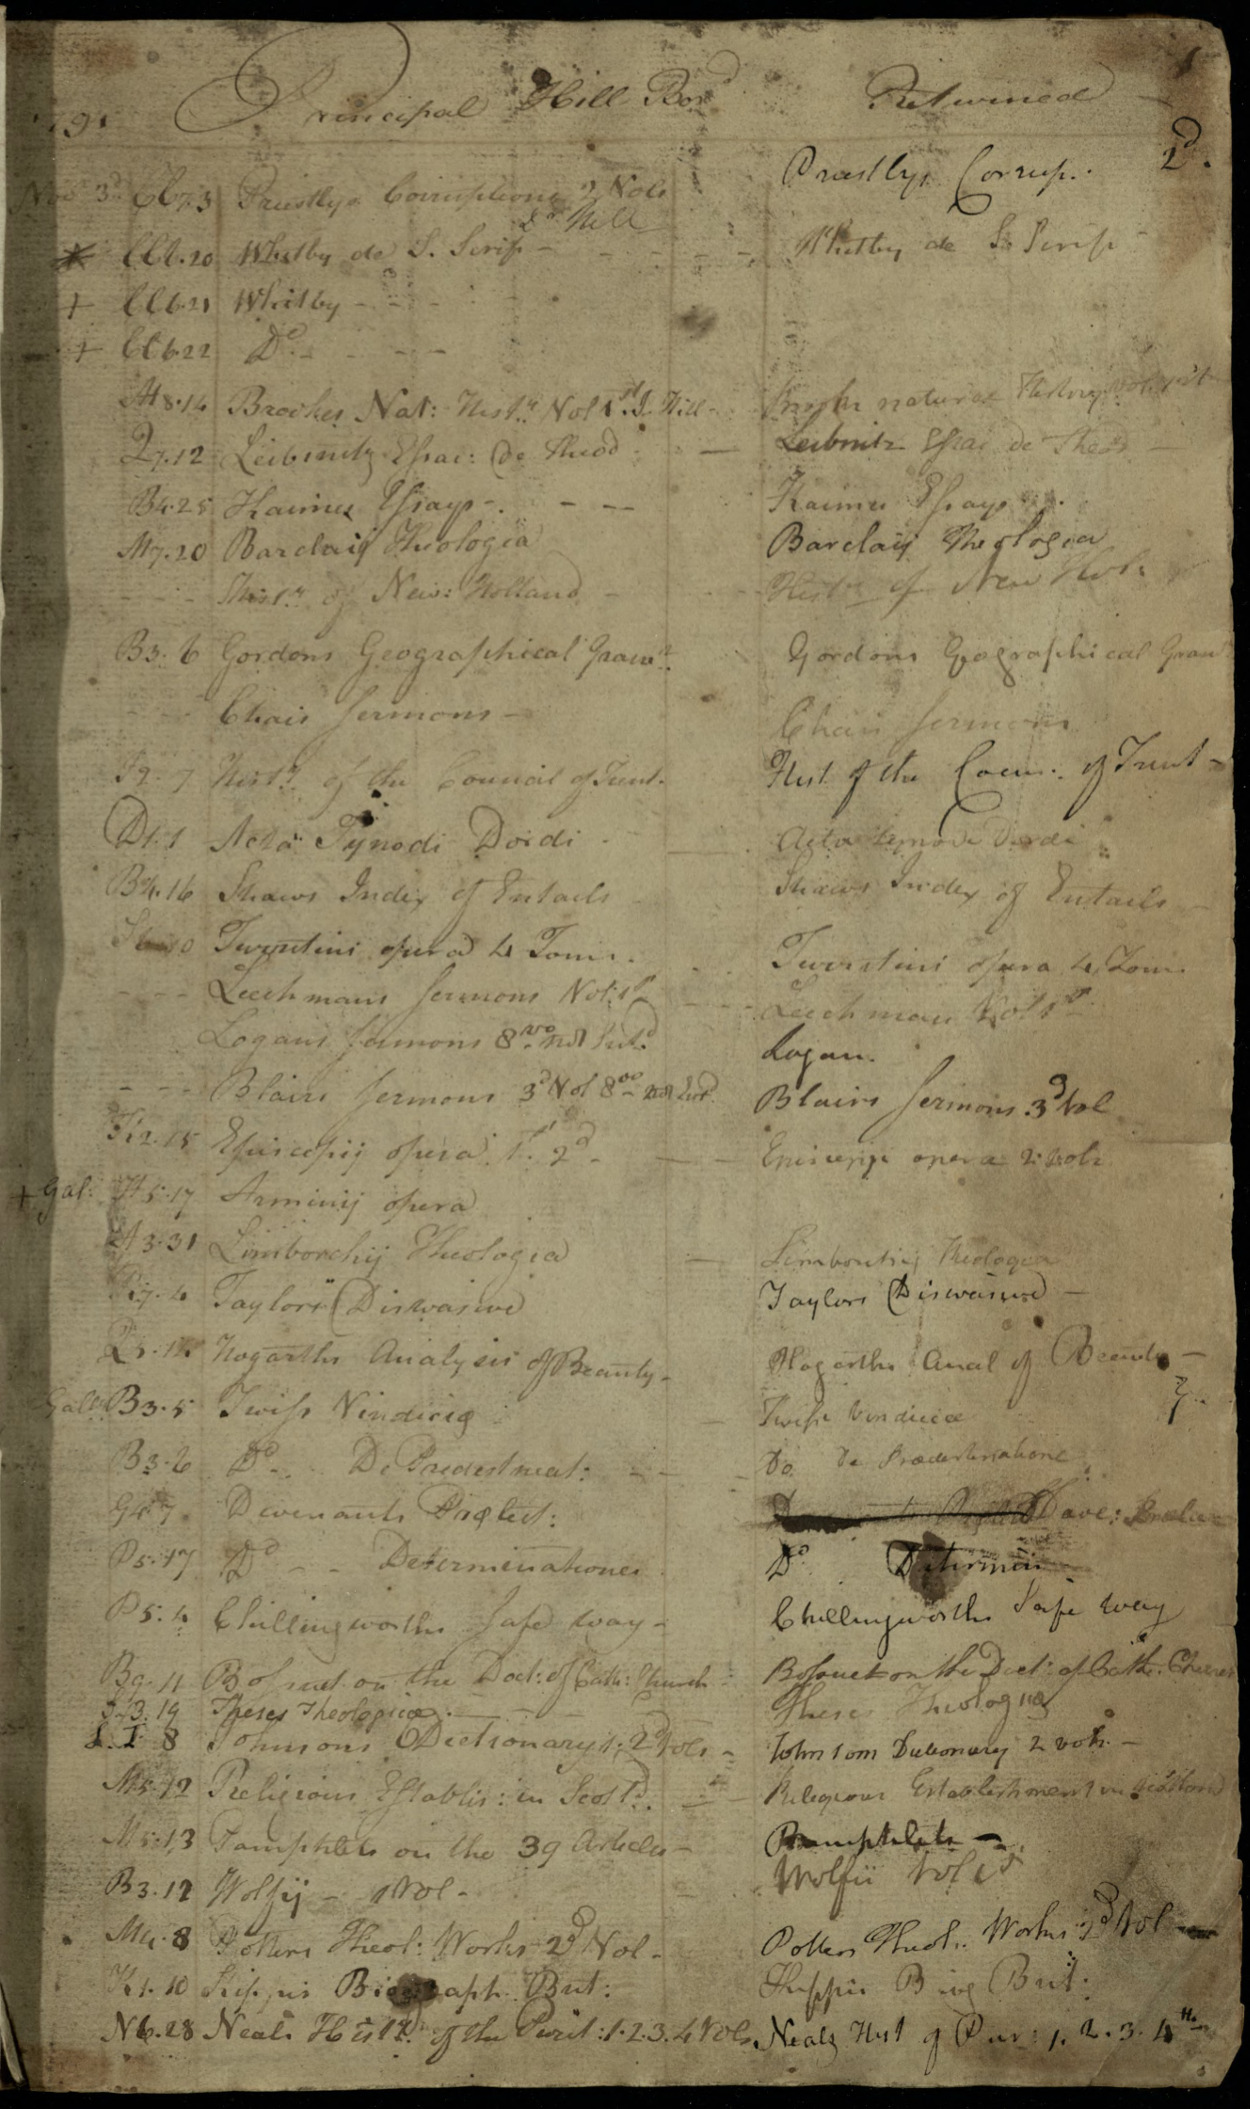 1
1791 Principal Hill Bord Returned
Novr 3d CC6.23 Priestlys Corruptions 2 Vols Priestlys Corrup.. 2d.
Dr Hill
* CC6.20 Whitby de S. Scrip - Whitby de S. Scrip
+ CC6.21 Whitby - - -
+ CC6.22 Do. - - -
8.14 Brookes Nat: Histy Vol 1st J. Hill natural History Vol. 1st
Q7.12 Leibnitz Essai: de Theod: Leibnitz Essai de Theod
B4.25 Kaimes Essays - Kaims Essays
M7.20 Barclaij Theologia Barclaij Theologia
Histy of New: Holland Histy of New Hol:
B3.6 Gordons Geographical Gramr. Gordons Geographical Gramr
Chais Sermons - Chais Sermons
7 Histy of the Council of Trent. Hist of the Coun: of Trent -
D1.1 Acta Synodi Dordi Acta Synodi Dordi
B4.16 Shaws Index of Entails Shaws Index of Entails
Turretini opera 4 Tom. Turretini opera 4 Tom.
Leechmans Sermons Vol: 1st Leechman Vol 1st
Logans Sermons 8vo Logan.
Blairs Sermons 3d Vol 8vo Blairs Sermons 3d Vol
2.15 Episcopij opera 1st 2d - Episcopij opera 2 vols
+ Gal: H5.17 Arminij opera
A3.31 Limborchij Theologia Limborchij Theologia
7.4 Taylors Diswasive Taylors Diswasive -
Hogarths Analysis of Beauty - Hogarths Anal of Beauty -
Gall B3.5 Twiss Vindiciæ Twiss Vindiciæ
B3.6 Do. De Predestinat: Do. De Prædestinatione
G4.7 Devenants Prælect: Dave: Prælec
P5.17 Do - Determinationes Do Determin
P5.4 Chillingworths Safe way - Chillingworths Safe way
B9.11 Bossuet on the Doct: of Cath: Church Bossuet on the Doct: of Cath: Church
3.19 Theses Theologicæ Theses Theologicæ
I 8 Johnsons Dictionary 1. 2d vols - Johnsons Dictionary 2 vols. -
M5.12 Religious Establis: in Scotd. Religious Establishment in Scotland
M5.13 Pamphlets on the 39 Articles - Pamphlets -
B3.12 Wolfij - 1 Vol - Wolfii Vol 1st
M4.8 Potters Theol: Works 2d Vol - Potters Theol: Works 2d Vol
K1.10 Kippis Biograph. Brit: Kippis Biog Brit:
N6.28 Neals Histy. of the Purit: 1.2.3.4 Vols. Neals Hist of Pur: 1. 2. 3. 4th